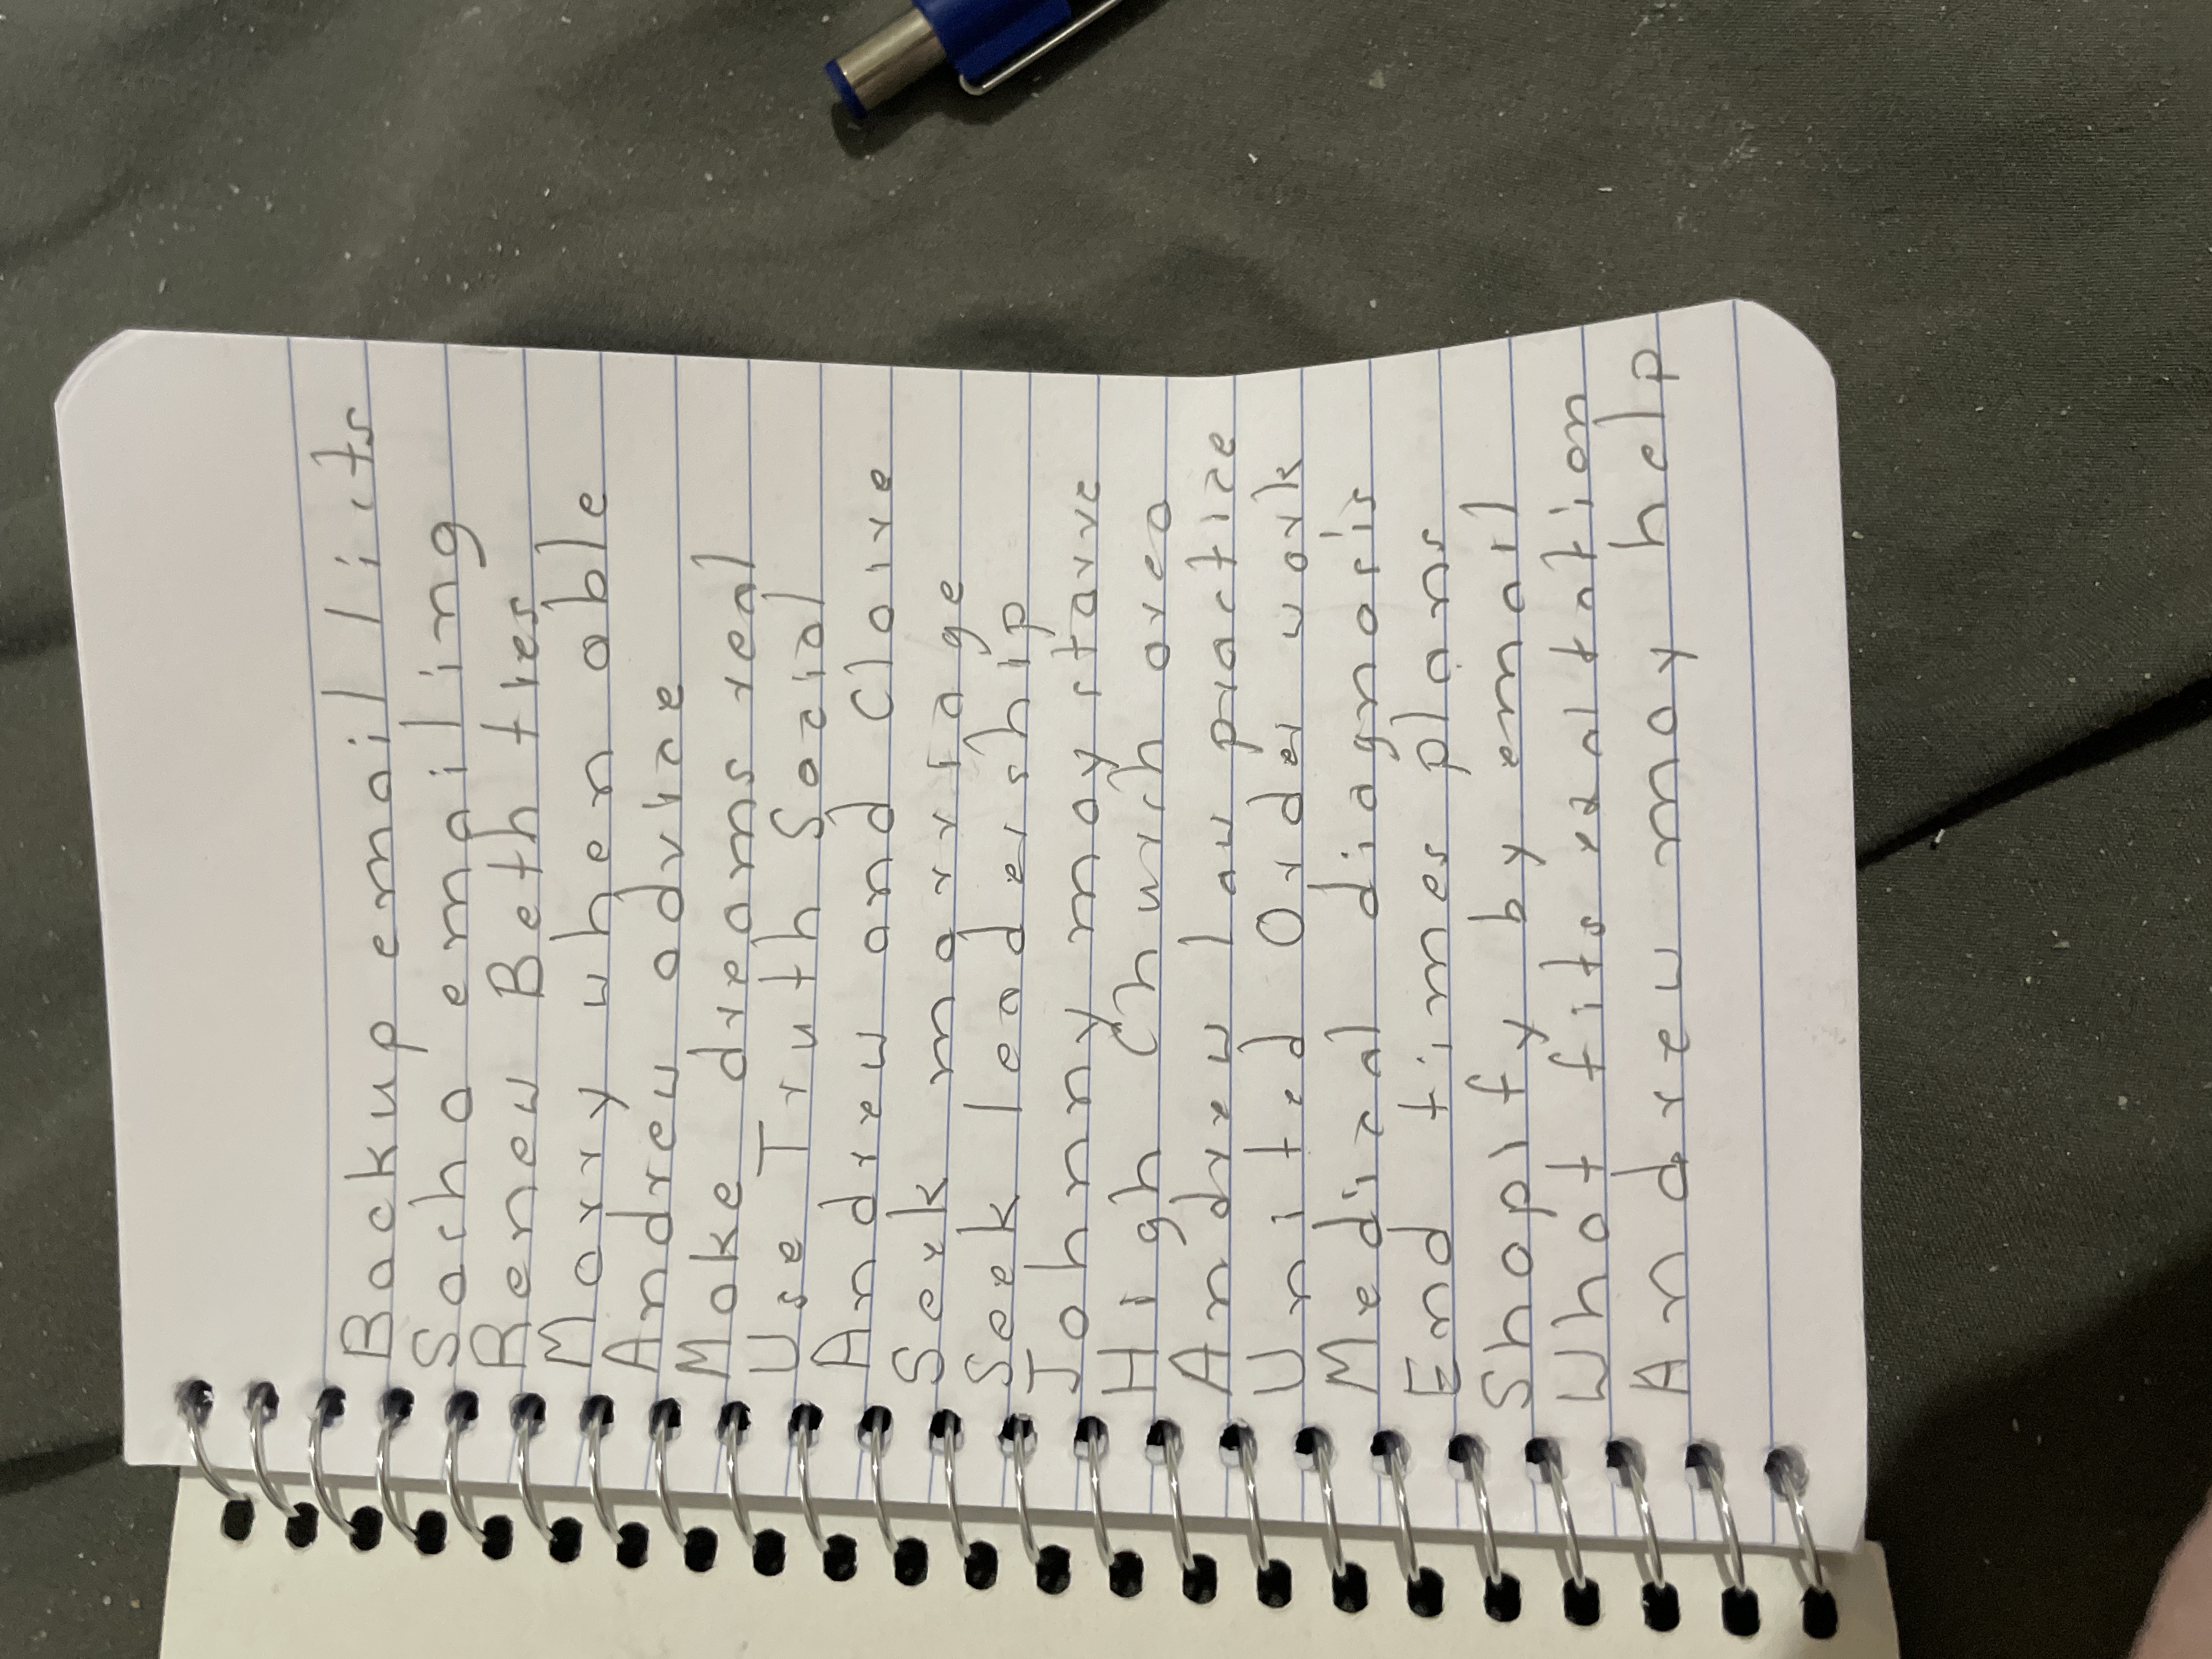 Backup email licts
Sacha emailing
Renew Beth ties
Marry when able
Andrew advice
Make dreams real
Use Truth Social
Andrew and Claire
Seek marriage
Seek leadership
Johnny may starve
High Church area
Andrew law practice
United Order work
Medical diagnosis
End times plans
Shopify by email
What fits exaltation
Andrew may help